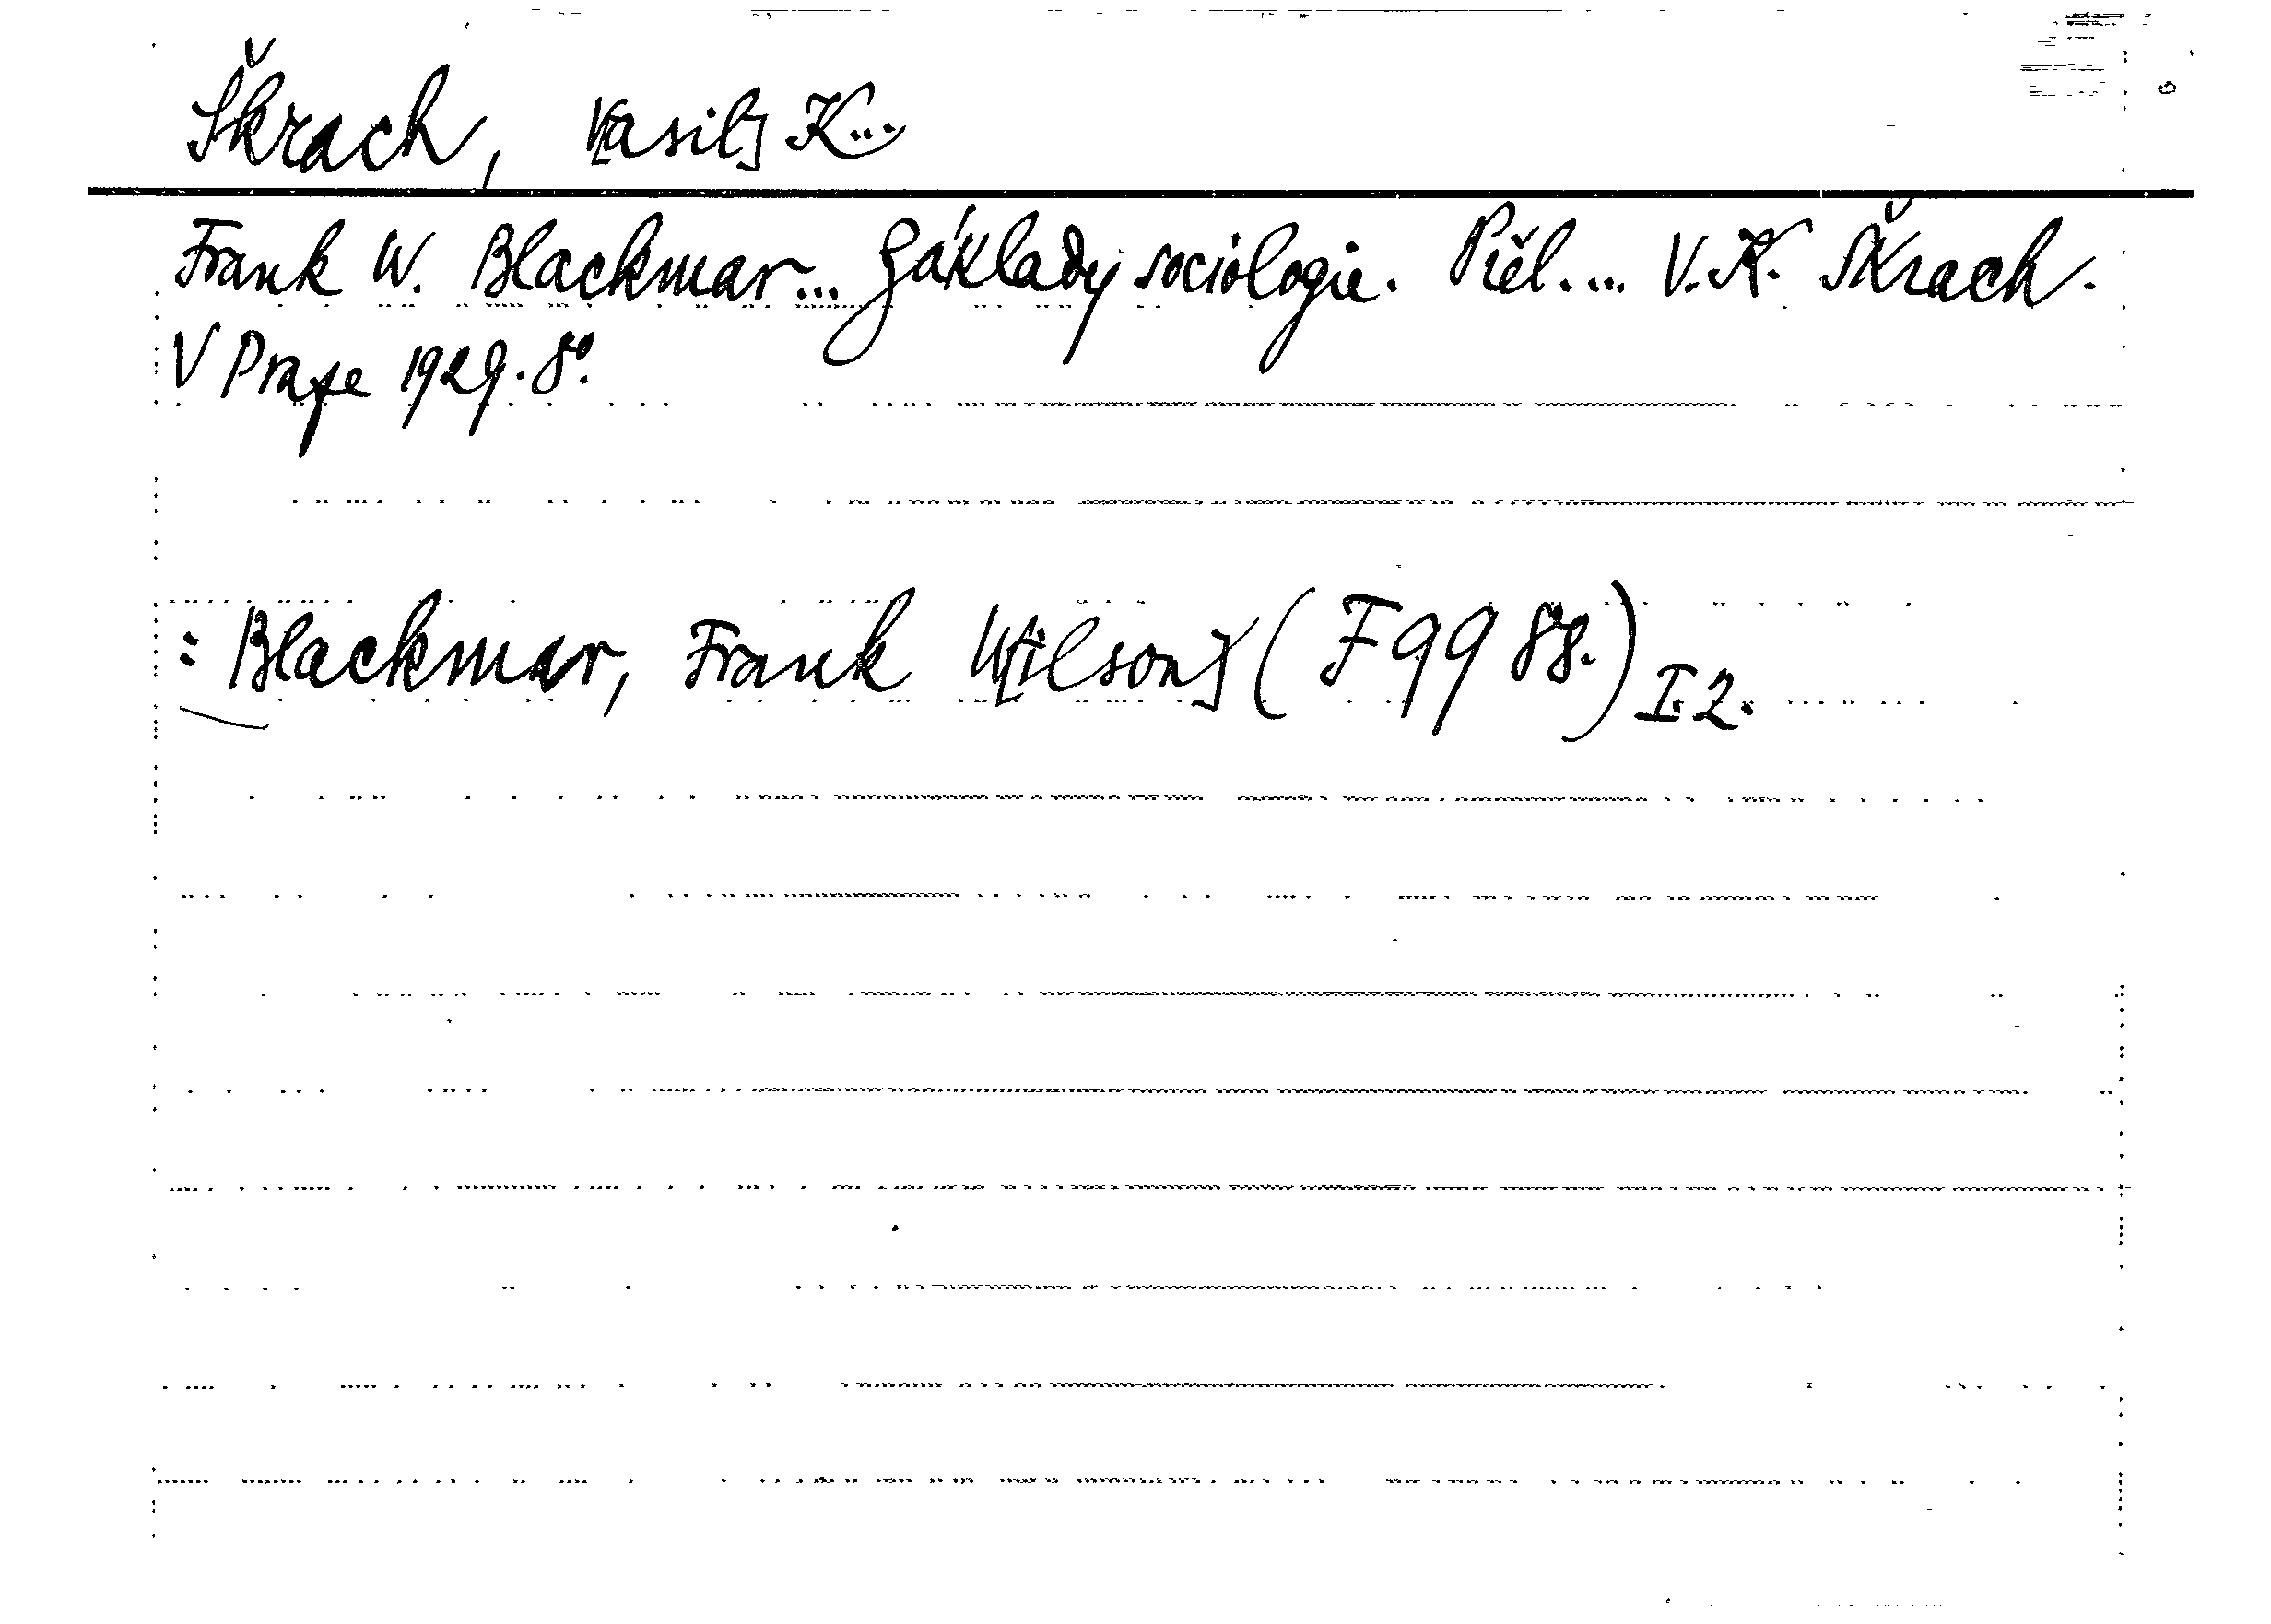 Škrach, V[asil] K...
Frank W. Blackmar... Základy sociologie. Přel.... V. K. Škrach.
V Praze 1929. 8°.
: Blackmar, Frank W[ilson] (F 99 88.) I. 2.